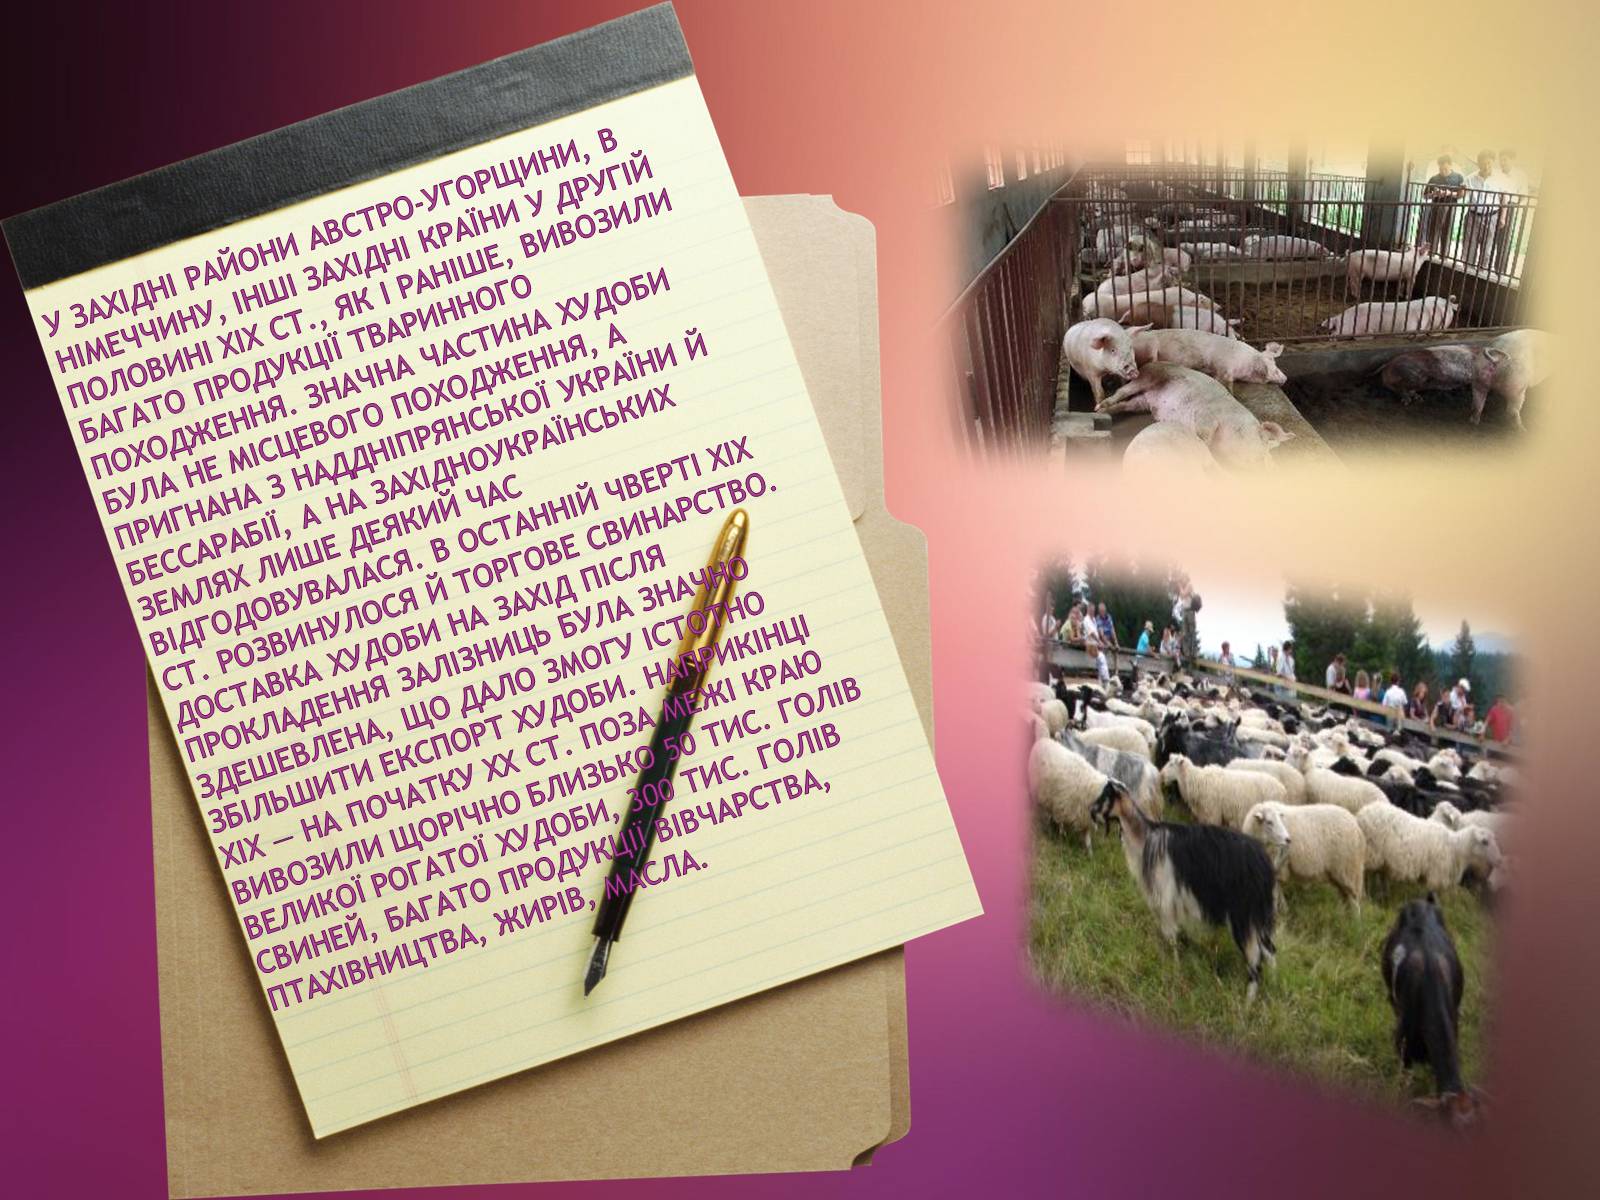 У ЗАХІДНІ РАЙОНИ АВСТРО-УГОРЩИНИ, В
НІМЕЧЧИНУ, ІНШІ ЗАХІДНІ КРАЇНИ У ДРУГІЙ
ПОЛОВИНІ ХІХ СТ., ЯК І РАНІШЕ, ВИВОЗИЛИ
БАГАТО ПРОДУКЦІЇ ТВАРИННОГО
ПОХОДЖЕННЯ. ЗНАЧНА ЧАСТИНА ХУДОБИ
БУЛА НЕ МІСЦЕВОГО ПОХОДЖЕННЯ, А
ПРИГНАНА З НАДДНІПРЯНСЬКОЇ УКРАЇНИ Й
БЕССАРАБІЇ, А НА ЗАХІДНОУКРАЇНСЬКИХ
ЗЕМЛЯХ ЛИШЕ ДЕЯКИЙ ЧАС
ВІДГОДОВУВАЛАСЯ. В ОСТАННІЙ ЧВЕРТІ ХІХ
СТ. РОЗВИНУЛОСЯ Й ТОРГОВЕ СВИНАРСТВО.
ДОСТАВКА ХУДОБИ НА ЗАХІД ПІСЛЯ
ПРОКЛАДЕННЯ ЗАЛІЗНИЦЬ БУЛА ЗНАЧНО
ЗДЕШЕВЛЕНА, ЩО ДАЛО ЗМОГУ ІСТОТНО
ЗБІЛЬШИТИ ЕКСПОРТ ХУДОБИ. НАПРИКІНЦІ
ХІХ — НА ПОЧАТКУ ХХ СТ. ПОЗА МЕЖІ КРАЮ
ВИВОЗИЛИ ЩОРІЧНО БЛИЗЬКО 50 ТИС. ГОЛІВ
ВЕЛИКОЇ РОГАТОЇ ХУДОБИ, 300 ТИС. ГОЛІВ
СВИНЕЙ, БАГАТО ПРОДУКЦІЇ ВІВЧАРСТВА,
ПТАХІВНИЦТВА, ЖИРІВ, МАСЛА.